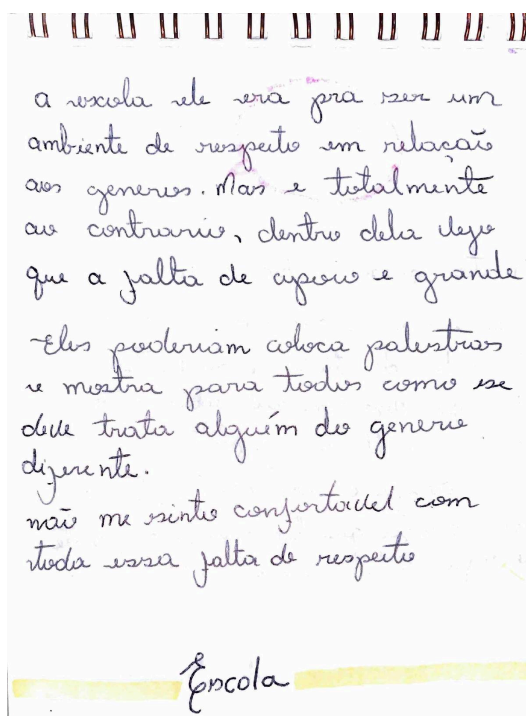 a escola ele era pra ser um
ambiente de respeito em relação
aos generos. Mas e totalmente
ao contrario, dentro dela vejo
que a falta de apoio e grande
Eles poderiam coloca palestras
e mostra para todos como se
deve trata alguém do genero
diferente.
não me sinto confortavel com
toda essa falta de respeito
Escola